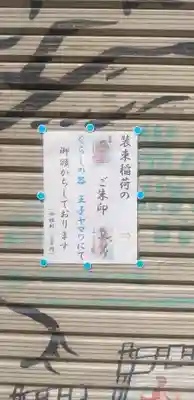 装束稲荷の
ご朱印
くらしの器 王子ヤマワにて
御頒かちしております